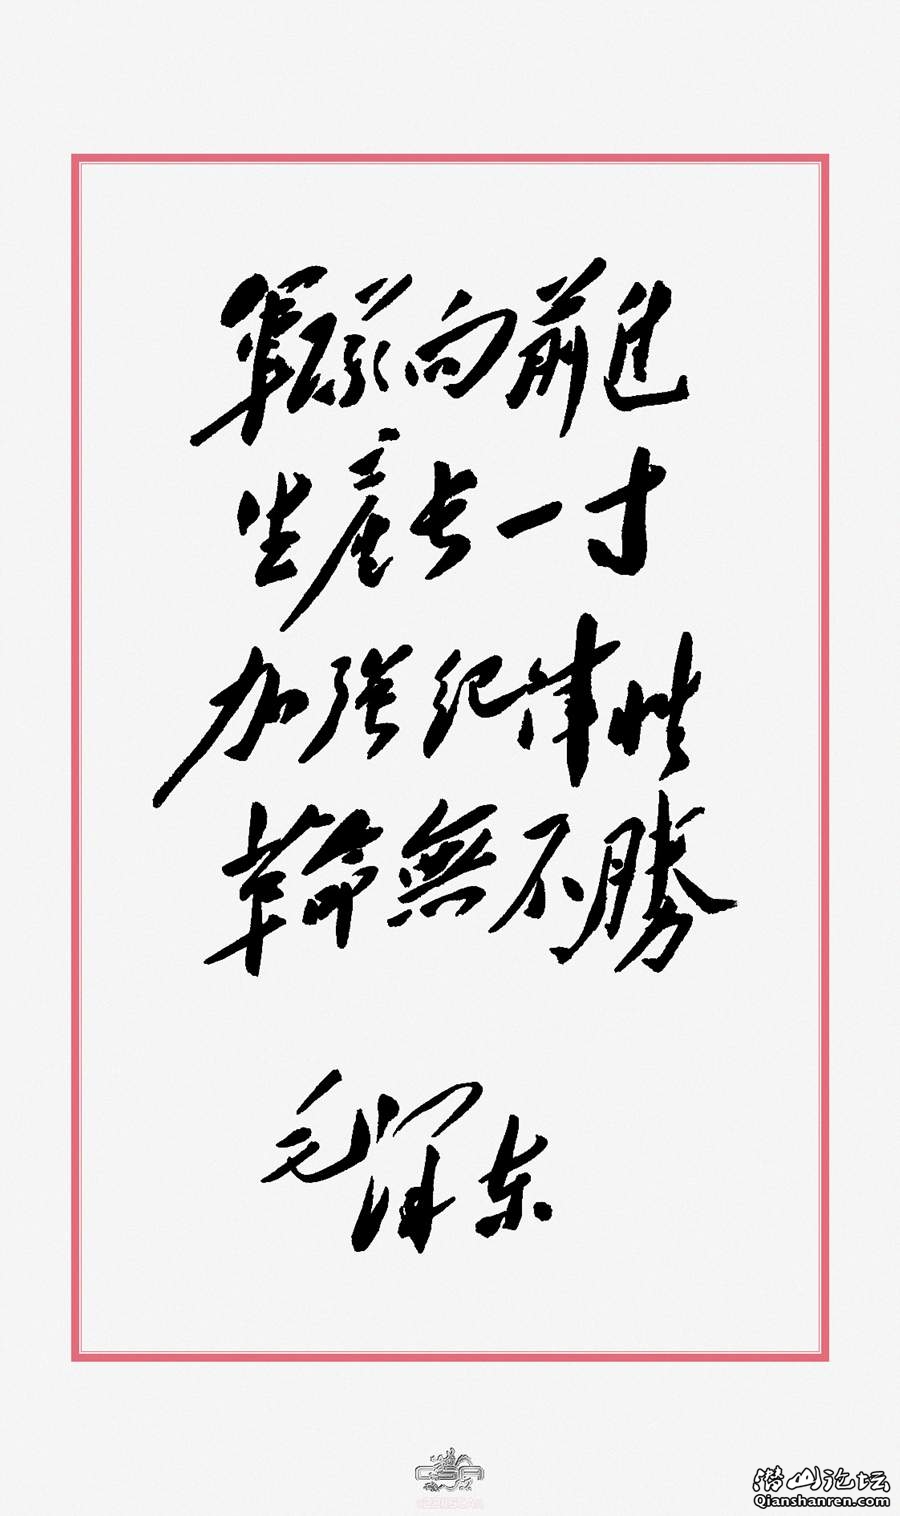 軍队向前進
生產长一寸
加强纪律性
革命無不勝
毛泽东
CSA
潜山论坛
Qianshanren.com